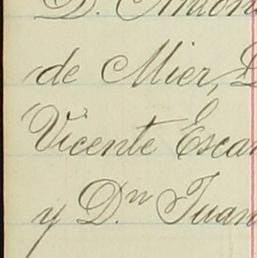 D. Anton
de Mier, D
Vicente Escan
y D.ⁿ Juan